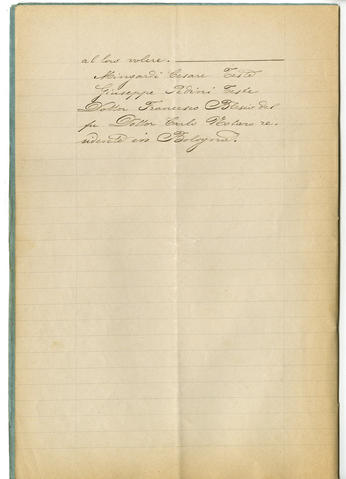 al loro volere.
Mingardi Cesare Teste
Giuseppe Pedini Teste
Dottor Francesco del
fu Dottor Carlo Notaro re-
sidente in Bologna.